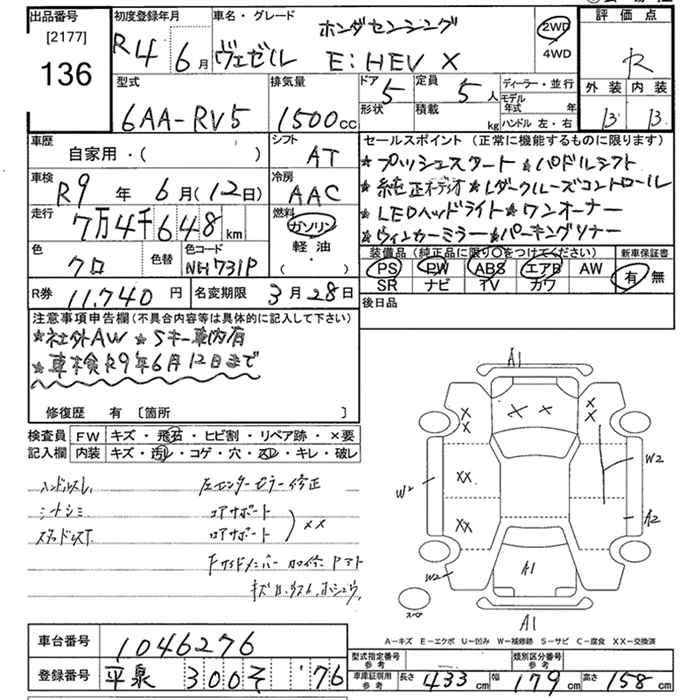 出品番号
[2177]
136
初度登録年月
R4年6月
車名・グレード
ホンダセンシング
ヴェゼル E:HEV X
2WD
4WD
評価点
R
外装 内装
B B
型式
6AA-RV5
排気量
1500cc
ドア
5
形状
定員
5人
積載
kg
ディーラー・並行
モデル年式 年
ハンドル 左・右
車歴
自家用・( )
シフト
AT
車検
R9年6月(12日)
冷房
AAC
走行
7万4千648km
燃料
ガソリン
軽油
・( )
色
クロ
色替
色コード
NH731P
R券
11,740円
名変期限
3月28日
セールスポイント(正常に機能するものに限ります)
★プッシュスタート★パドルシフト
★純正オーディオ★レダークルーズコントロール
★LEDヘッドライト★ワンオーナー
★ウィンカーミラー★パーキングソナー
装備品(純正品に限り○をつけてください)
新車保証書
PS PW ABS エアB AW
SR ナビ TV カワ
有 無
後日品
注意事項申告欄(不具合内容等は具体的に記入して下さい)
★社外AW ★Sキー車内有
★車検R9年6月12日まで
修復歴 有 [箇所 ]
検査員記入欄
FW キズ・飛石・ヒビ割・リペア跡・×要
内装 キズ・汚レ・コゲ・穴・スレ・キレ・破レ
ハンドルスレ
左センターピラー修正
シートシミ
コアサポート
ロアサポート
XX
A1
W2
A2
スペア
A-キズ E-エクボ U-凹み W-補修跡 S-サビ C-腐食 XX-交換済
車台番号
1046276
登録番号
平泉 300 そ ・・76
型式指定番号
参考
類別区分番号
参考
車庫証明用
参考
長さ 433cm 幅 179cm 高さ 158cm